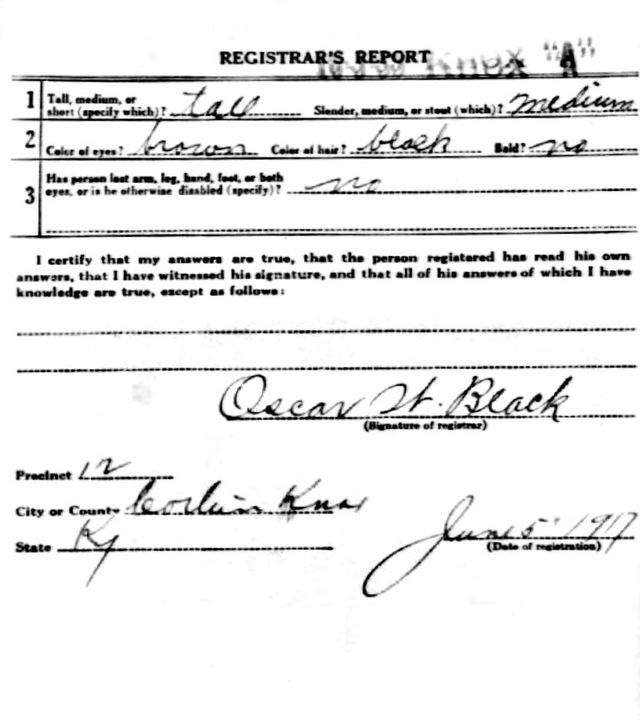 REGISTRAR'S REPORT
Knox "A"
1 Tall, medium, or short (specify which)? tall Slender, medium, or stout (which)? medium
2 Color of eyes? brown Color of hair? black Bald? no
3 Has person lost arm, leg, hand, foot, or both
eyes, or is he otherwise disabled (specify)? no
I certify that my answers are true, that the person registered has read his own
answers, that I have witnessed his signature, and that all of his answers of which I have
knowledge are true, except as follows:
Oscar W. Black
(Signature of registrar)
Precinct 12
City or County Corbin Knox
State Ky
June 5 1917
(Date of registration)